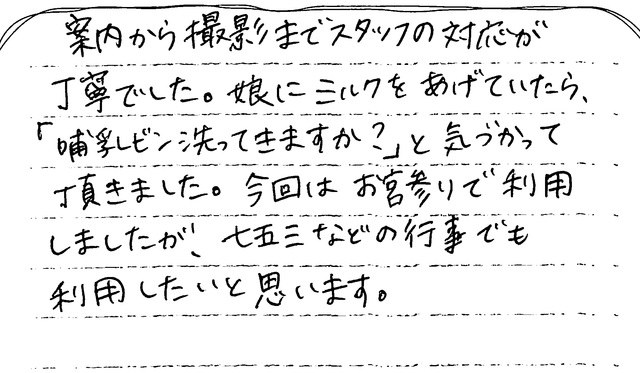 案内から撮影までスタッフの対応が
丁寧でした。娘にミルクをあげていたら、
「哺乳ビン洗ってきますか?」と気づかって
頂きました。今回はお宮参りで利用
しましたが、七五三などの行事でも
利用したいと思います。